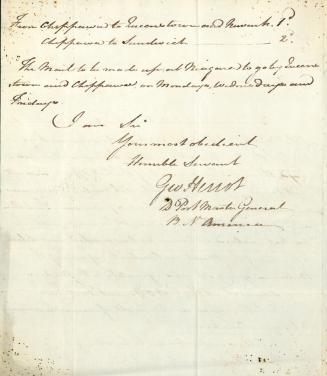 From Chippawa to Queenstown and Newark 1d
Chippawa to Sandwich — 2d
The Mail to be made up at Niagara to go by Queens
town and Chippawa on Mondays, Wednesdays and
Fridays
I am Sir
Your most obedient
Humble Servant
Geo Heriot
D Post Master General
B. N America